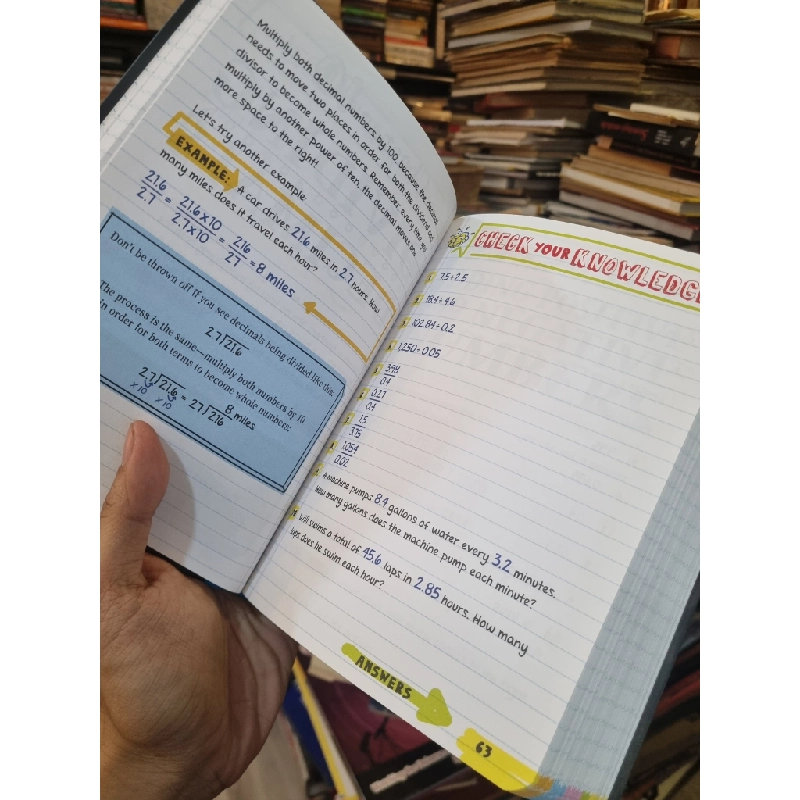 Multiply both decimal numbers by 100, because the decimal
needs to move two places in order for both the dividend and
divisor to become whole numbers. Remember, every time you
multiply by another power of ten, the decimal moves one
more space to the right!
Let's try another example:
EXAMPLE: A car drives 21.6 miles in 2.7 hours. How
many miles does it travel each hour?
21.6/2.7 = 21.6x10/2.7x10 = 216/27 = 8 miles
Don't be thrown off if you see decimals being divided like this:
2.7)21.6
The process is the same—multiply both numbers by 10
in order for both terms to become whole numbers:
2.7)21.6 = 27)216 8 miles
x10 x10
CHECK YOUR KNOWLEDGE
1. 7.5 ÷ 2.5
2. 18.4 ÷ 4.6
3. 102.84 ÷ 0.2
4. 1,250 ÷ 0.05
5. 3.98/0.4
6. 0.27/0.4
7. 1.5/3.75
8. 1.054/0.02
9. A machine pumps 8.4 gallons of water every 3.2 minutes.
How many gallons does the machine pump each minute?
10. Will swims a total of 45.6 laps in 2.85 hours. How many
laps does he swim each hour?
ANSWERS
63